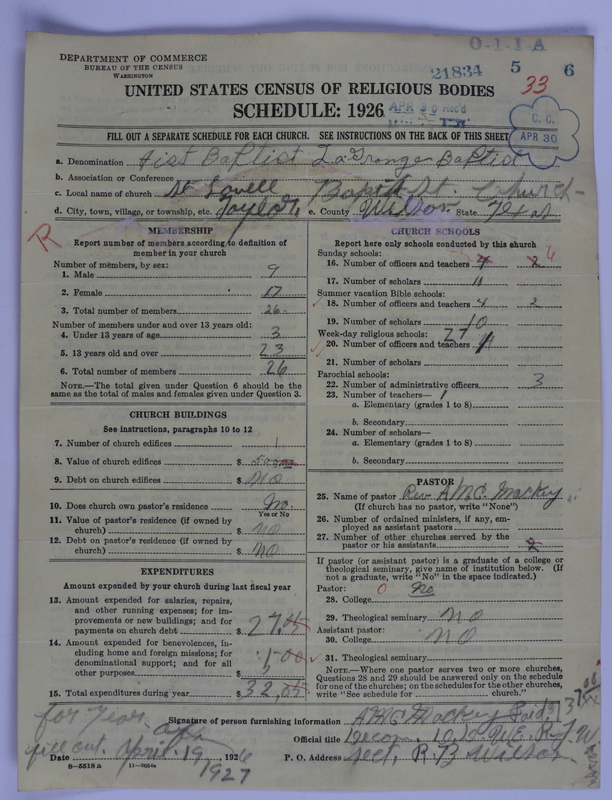 O-1-I-A
DEPARTMENT OF COMMERCE
BUREAU OF THE CENSUS
WASHINGTON
21834 5 6
UNITED STATES CENSUS OF RELIGIOUS BODIES
33
SCHEDULE: 1926
APR 30 Rec'd
C. C.
APR 30
FILL OUT A SEPARATE SCHEDULE FOR EACH CHURCH. SEE INSTRUCTIONS ON THE BACK OF THIS SHEET
a. Denomination Fist Baptist LaGrange Baptist
b. Association or Conference
c. Local name of church St Lovell Baptist St. Church
d. City, town, village, or township, etc. Taylor, e. County Wilson State Texas
R
MEMBERSHIP
Report number of members according to definition of
member in your church
Number of members, by sex:
1. Male 9
2. Female 17
3. Total number of members 26
Number of members under and over 13 years old:
4. Under 13 years of age 3
5. 13 years old and over 23
6. Total number of members 26
NOTE.—The total given under Question 6 should be
same as the total of males and females given under Question 3.
CHURCH BUILDINGS
See instructions, paragraphs 10 to 12
7. Number of church edifices 1
8. Value of church edifices $ 500
9. Debt on church edifices $ No
10. Does church own pastor's residence? No.
Yes or No
11. Value of pastor's residence (if owned by
church) $ no
12. Debt on pastor's residence (if owned by
church) $ no
EXPENDITURES
Amount expended by your church during last fiscal year
13. Amount expended for salaries, repairs,
and other running expenses; for im-
provements or new buildings; and for
payments on church debt $ 27.
14. Amount expended for benevolences, in-
cluding home and foreign missions; for
denominational support; and for all
other purposes $ 5.00
15. Total expenditures during year $ 32.05
CHURCH SCHOOLS
Report here only schools conducted by this church
Sunday schools:
16. Number of officers and teachers 4 2 6
17. Number of scholars 11
Summer vacation Bible schools:
18. Number of officers and teachers 4 2
19. Number of scholars 10
Week-day religious schools:
20. Number of officers and teachers
21. Number of scholars
Parochial schools:
22. Number of administrative officers 3
23. Number of teachers— 1
a. Elementary (grades 1 to 8)
b. Secondary
24. Number of scholars—
a. Elementary (grades 1 to 8)
b. Secondary
PASTOR
25. Name of pastor Rev. A.M.C. Mackey
(If church has no pastor, write "None")
26. Number of ordained ministers, if any, em-
ployed as assistant pastors
27. Number of other churches served by the
pastor or his assistants 2
If pastor (or assistant pastor) is a graduate of a college or
theological seminary, give name of institution below. (If
not a graduate, write "No" in the space indicated.)
Pastor:
28. College 0 No
29. Theological seminary no
Assistant pastor:
30. College no
31. Theological seminary
NOTE.—Where one pastor serves two or more churches,
Questions 28 and 29 should be answered only on the schedule
for one of the churches; on the schedules for the other churches,
write "See schedule for church."
for year.
Signature of person furnishing information A.M.C. Mackey
Official title
fill out. April 19
Date , 1926 P. O. Address Sect, R. B Wilson
1927
8—5518 a